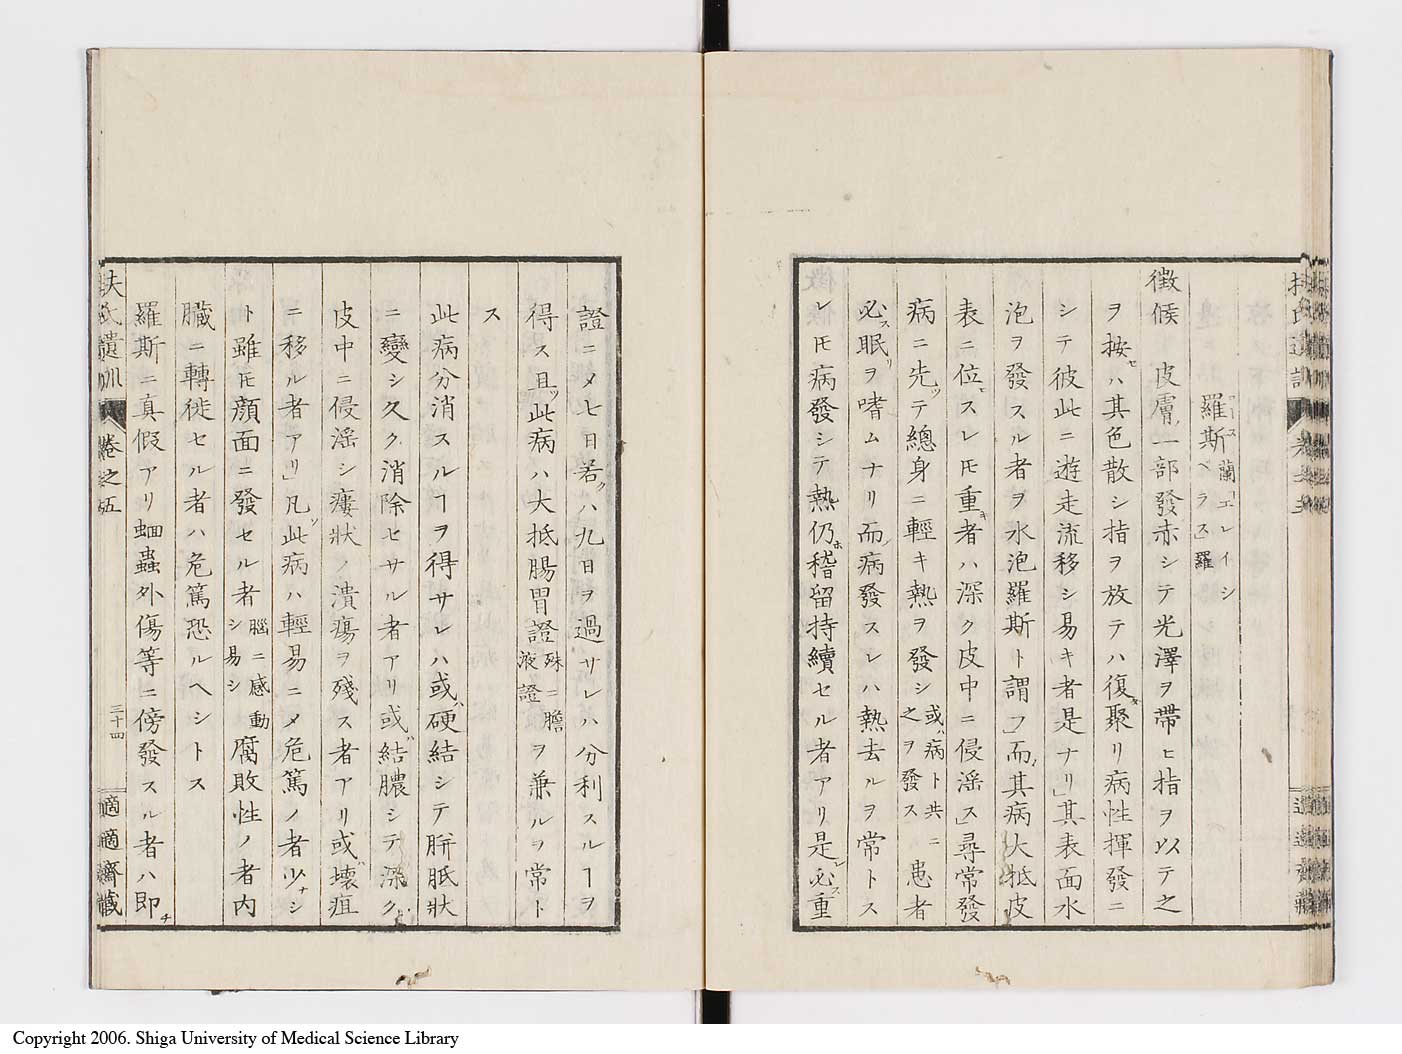 羅斯蘭「エレイシペラス」羅
徴候 皮膚一部發赤シテ光澤ヲ帶ヒ指ヲ以テ之
ヲ按セハ其色散シ指ヲ放テハ復タ聚リ病性揮發ニ
シテ彼此ニ遊走流移シ易キ者是ナリ」其表面水
泡ヲ發スル者ヲ水泡羅斯ト謂フ」而其病大抵皮
表ニ位スレ𪜈重キ者ハ深ク皮中ニ侵淫ス」尋常發
病ニ先ツテ總身ニ輕キ熱ヲ發シ或ハ病ト共ニ之ヲ發ス患者
必ス眠リヲ嗜ムナリ而病發スレハ熱去ルヲ常トス
レ𪜈病發シテ熱仍ホ稽留持續セル者アリ是レ必ス重
證ニ〆七日若クハ九日ヲ過サレハ分利スルヿヲ
得ス且ツ此病ハ大抵腸胃證殊ニ膽液證ヲ兼ルヲ常ト
ス
此病分消スルヿヲ得サレハ或ハ硬結シテ胼胝狀
ニ變シ久ク消除セサル者アリ或ハ結膿シテ深ク
皮中ニ侵淫シ瘻狀ノ潰瘍ヲ殘ス者アリ或ハ壞疽
ニ移ル者アリ」凡ソ此病ハ輕易ニ〆危篤ノ者少ナシ
ト雖𪜈顔面ニ發セル者腦ニ感動シ易シ腐敗性ノ者内
臓ニ轉徙セル者ハ危篤恐ルヘシトス
羅斯ニ真假アリ蛔蟲外傷等ニ傍發スル者ハ即チ
扶氏遺訓 卷之五 三十四 適適齋藏